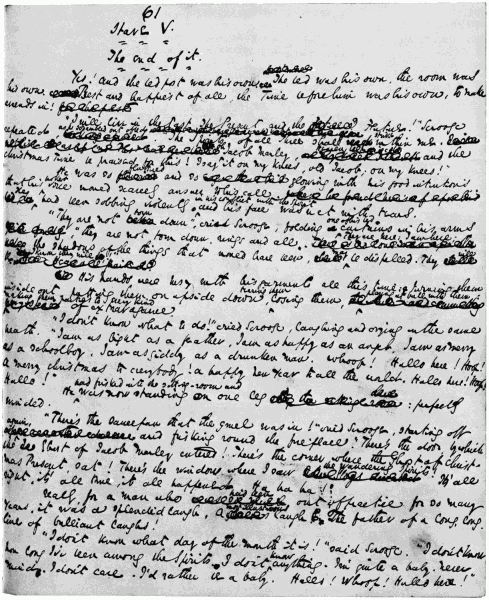 61
Stave V.
The end of it.
Yes! and the bedpost was his own. The bed was his own, the room was
his own. Best and happiest of all, the Time before him was his own, to make
amends in!
"I will live in the Past, the Present, and the Future!" Scrooge
repeated as he scrambled out of bed. "The Spirits of all Three shall strive within me.
Jacob Marley, Heaven and the
Christmas Time be praised for this! I say it on my knees, old Jacob, on my knees!"
He was so fluttered and so glowing with his good intentions
that his voice would scarcely answer to his call.
He had been sobbing violently in his conflict with the Spirit, and his face was wet with tears.
"They are not torn down", cried Scrooge, folding curtains in his arms
"they are not torn down, rings and all.
the shadows of the things that would have been, be dispelled. They
will be. I know they will!
His hands were busy with his garments all this time: turning them
inside out, putting them on upside down, tearing them, losing them, making them parties to every kind
of extravagance.
"I don't know what to do!" cried Scrooge, laughing and crying in the same
breath. "I am as light as a feather, I am as happy as an angel, I am as merry
as a schoolboy. I am as giddy as a drunken man. Whoop! Hallo here! Hoop!
A merry Christmas to everybody! a happy New Year to all the world. Hallo here! Whoop!
Hallo!"
had frisked into the sitting-room and
He was now standing there: perfectly
winded.
"There's the saucepan that the gruel was in!" cried Scrooge, starting off
again, and frisking round the fireplace. "There's the door, by which
the Ghost of Jacob Marley entered! There's the corner where the Ghost of Christ-
mas Present, sat! There's the window where I saw the wandering Spirits! It's all
right, it's all true, it all happened. Ha ha ha!"
Really, for a man who had been out of practice for so many
years, it was a splendid laugh, a most illustrious laugh. The father of a long, long,
line of brilliant laughs!
"I don't know what day of the month it is!" said Scrooge. "I don't know
how long I've been among the Spirits. I don't know anything. I'm quite a baby. Never
mind. I don't care. I'd rather be a baby. Hallo! Whoop! Hallo here!"